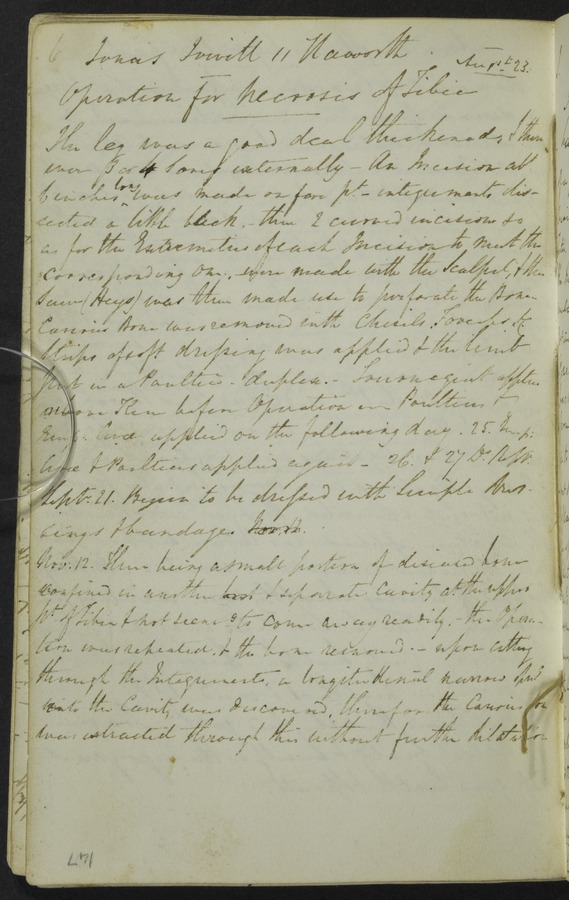 6 Jonas 11 Haworth
Augst 23.
Operation for Necrosis of Tibia
The leg was a good deal thickened, & there
were 3 or 4 externally - An Incision abt
6 inches long was made on fore pt - integuments dis-
sected a little back - then 2 curved incisions so
as for the Extremities of each Incision to meet the
corresponding one, were made with the Scalpel, & the
Saw (Heys) was then made use to perforate the Bone
Carious Bone was removed with Chisels, Forceps &c
Strips of soft dressing was applied & the limb
put in a Poultice - duplex. - Tourniquet applied
above Knee before Operation Poultices &
applied on the following day. 25.
& Poultices applied again - 26. & 27 Do
Septr. 21. Began to be dressed with Simple Dres-
sings & bandage. Nov. 12.
Nov. 12. There being a small portion of diseased bone
confined in another & separate Cavity at the upper
pt of Tibia & not seeming to come away readily, - the Opera-
tion was repeated, & the bone removed. - upon cutting
through the Integuments, a longitudinal narrow
into the Cavity was discovered, therefore the Carious
was extracted through this without further dilatation
147